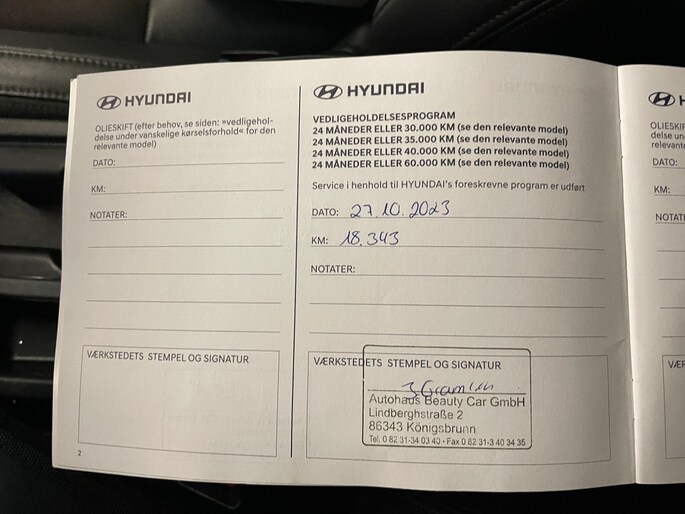 HYUNDAI
OLIESKIFT (efter behov, se siden: »vedligehol-
delse under vanskelige kørselsforhold« for den
relevante model)
DATO:
KM:
NOTATER:
VÆRKSTEDETS STEMPEL OG SIGNATUR
2
HYUNDAI
VEDLIGEHOLDELSESPROGRAM
24 MÅNEDER ELLER 30.000 KM (se den relevante model)
24 MÅNEDER ELLER 35.000 KM (se den relevante model)
24 MÅNEDER ELLER 40.000 KM (se den relevante model)
24 MÅNEDER ELLER 60.000 KM (se den relevante model)
Service i henhold til HYUNDAI's foreskrevne program er udført
DATO: 27.10.2023
KM: 18.343
NOTATER:
VÆRKSTEDETS STEMPEL OG SIGNATUR
Autohaus Beauty Car GmbH
Lindberghstraße 2
86343 Königsbrunn
Tel. 0 82 31-34 03 40 · Fax 0 82 31-3 40 34 35
H
OLIESKIF
delse un
relevante
DATO:
KM:
NOTAT
VÆF